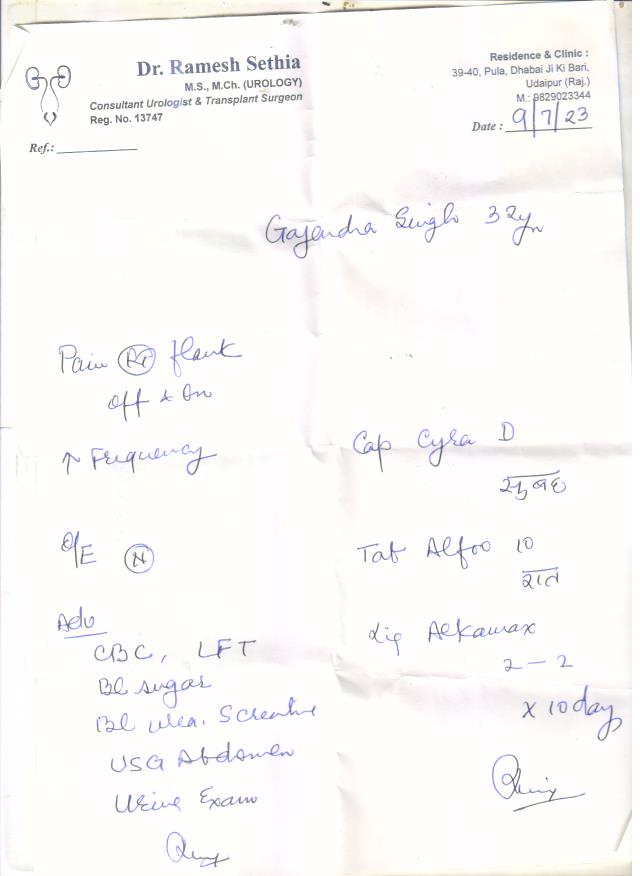 Dr. Ramesh Sethia
M.S., M.Ch. (UROLOGY)
Consultant Urologist & Transplant Surgeon
Reg. No. 13747
Ref.:
Residence & Clinic :
39-40, Pula, Dhabai Ji Ki Bari,
Udaipur (Raj.)
M.: 9829023344
Date : 9/7/23
Gajendra Singh 32yr
Pain Rt flank
Off & On
↑ Frequency
O/E N
Adv
CBC, LFT
Bl sugar
Bl urea. S creatine
USG Abdomen
Urine Exam
Cap Cyra D
सुबह
Tab Alfoo 10
रात
Liq Alkamax
2 - 2
x 10 day